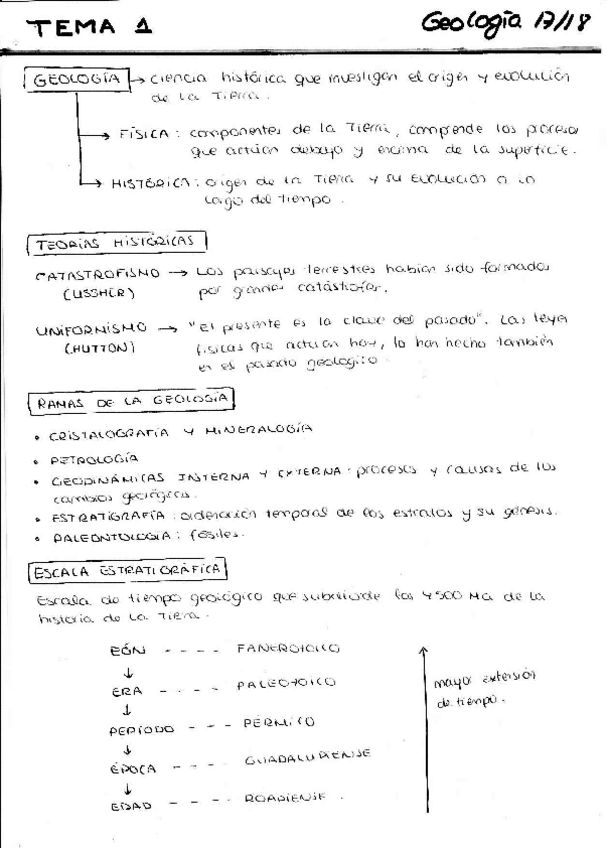 TEMA 1
Geología 17/18
GEOLOGÍA → ciencia histórica que investigan el origen y evolución
de la Tierra.
→ FÍSICA: componentes de la Tierra, comprende los procesos
que actúan debajo y encima de la superficie.
→ HISTÓRICA: origen de la Tierra y su evolución a lo
largo del tiempo.
TEORÍAS HISTÓRICAS
CATASTROFISMO → Los paisajes terrestres habían sido formados
(USSHER) por grandes catástrofes.
UNIFORMISMO → "el presente es la clave del pasado". Las leyes
(HUTTON) físicas que actúan hoy, lo han hecho también
en el pasado geológico.
RAMAS DE LA GEOLOGÍA
• CRISTALOGRAFÍA Y MINERALOGÍA
• PETROLOGÍA
• GEODINÁMICAS INTERNA Y EXTERNA: procesos y causas de los
cambios geológicos.
• ESTRATIGRAFÍA: ordenación temporal de los estratos y su génesis.
• PALEONTOLOGÍA: fósiles.
ESCALA ESTRATIGRÁFICA
Escala de tiempo geológico que subdivide los 4500 Ma de la
historia de la Tierra.
EÓN ---- FANEROZOICO
↓
ERA ---- PALEOZOICO
↓
PERÍODO --- PÉRMICO
↓
ÉPOCA --- GUADALUPIENSE
↓
EDAD ---- ROADIENSE.
mayor extensión
de tiempo.